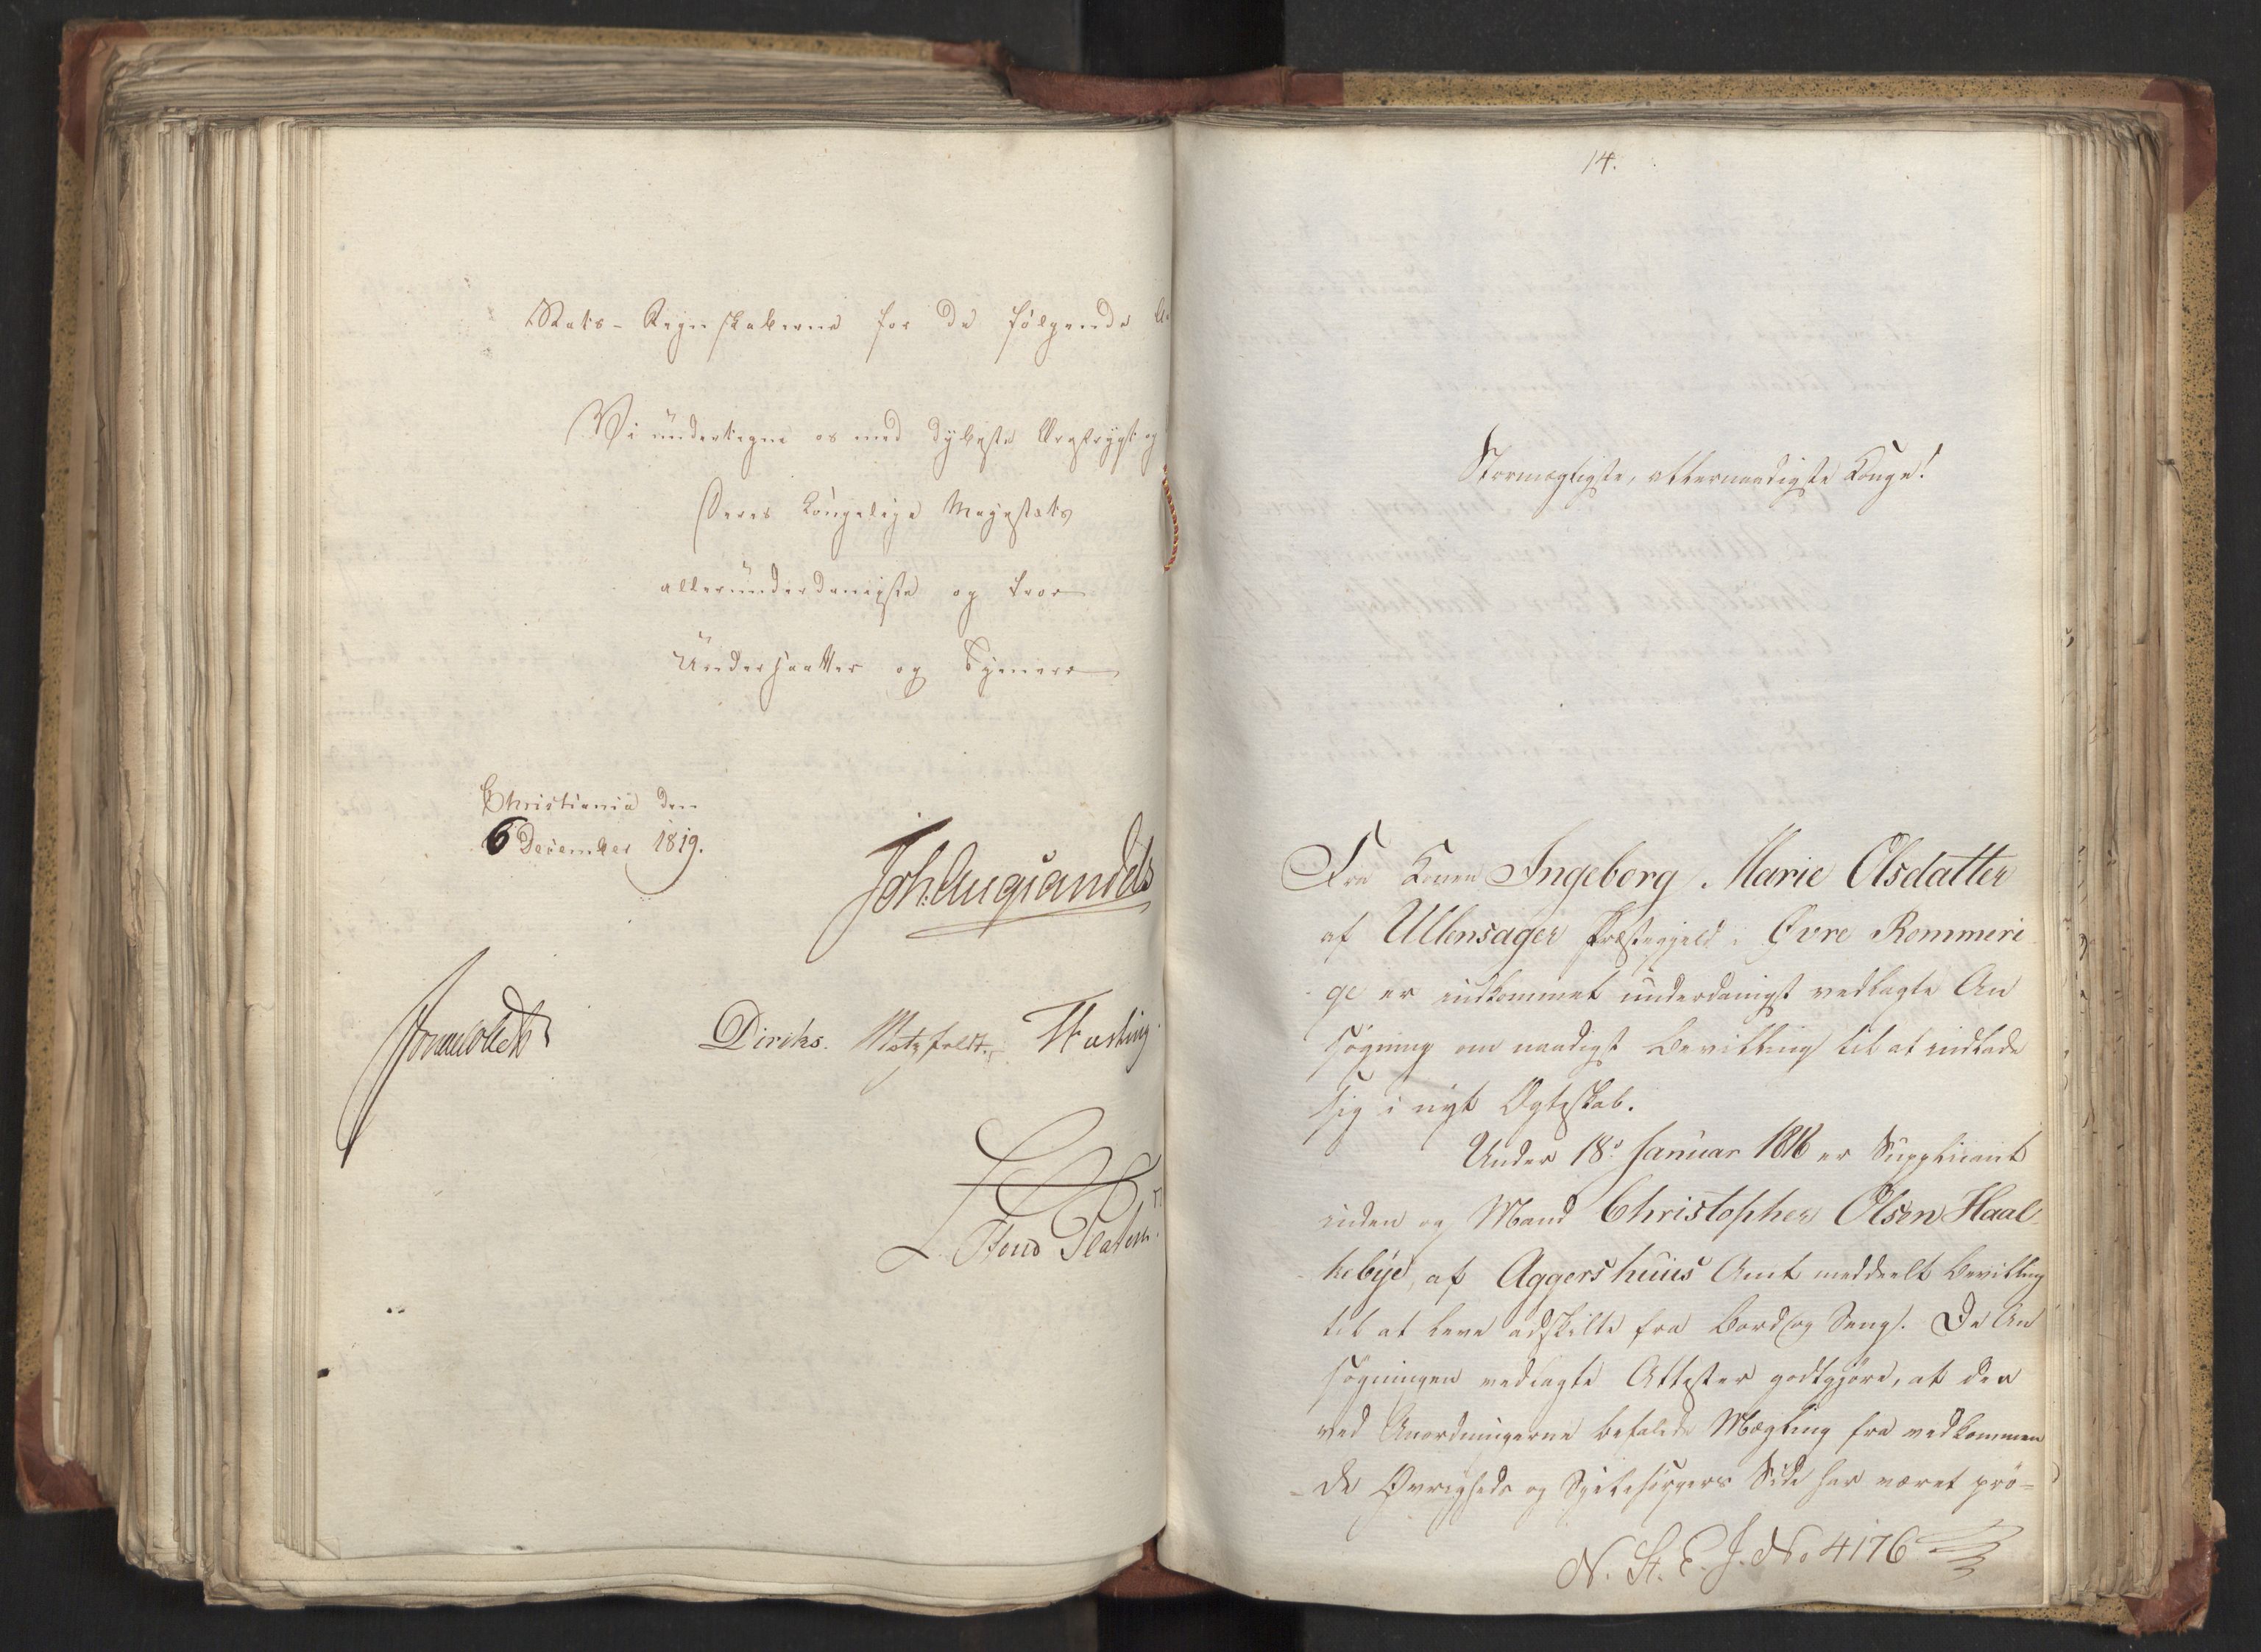 Stats-Regnskaberne for de følgende
Vi undertegne os med dybeste Ærefrygt og
Deres Kongelige Majestæts
allerunderdanigste og troe
Undersaatter og Tjenere
Christiania den
6 December 1819.
Joh. Aug Sandels
Sommerhielm
Diriks. Motzfeldt. Fasting
14.
Stormægtigste, allernaadigste Konge!
Fra Konen Ingeborg Marie Olsdatter
af Ullensager Præstegjeld i Øvre Rommeri
ge er indkommet underdanigst vedlagte An
søgning om naadigst Bevilling til at indlade
sig i nyt Ægteskab.
Under 18d. Januar 1816 er Supplicant
inden og Mand Christopher Olsen Haal-
kebye, af Aggershuus Amt meddeelt Bevilling
til at leve adskilte fra Bord og Seng. De An
søgningen vedlagte Attester godtgjøre, at den
ved Anordningerne befalede Mægling fra vedkommen
de Øvrigheds og Sjelesørgers Side har været prø-
N. St. E. J. No 4176